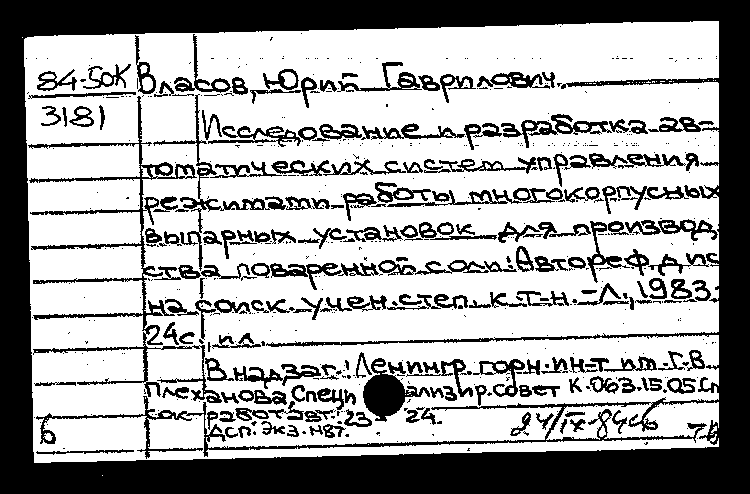 84-50К Власов, Юрий Гаврилович.
3181
Исследование и разработка ав-
томатических систем управления
режимами работы многокорпусных
выпарных установок для производ-
ства поваренной соли: Автореф. дис
на соиск. учен. степ. к.т.н. - Л., 1983.-
24с., ил.
В надзаг.: Ленингр. горн. ин-т им. Г.В.
Плеханова, Специализир. совет К.063.15.05. Сп
сок работ авт.: 23- 24.
ДСП. Экз. №87.
б
24/IX-84